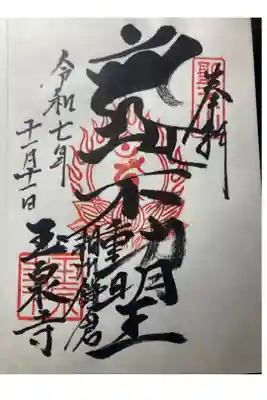 奉拝
不動明王
相州鎌倉
令和七年
十一月十一日
玉泉寺